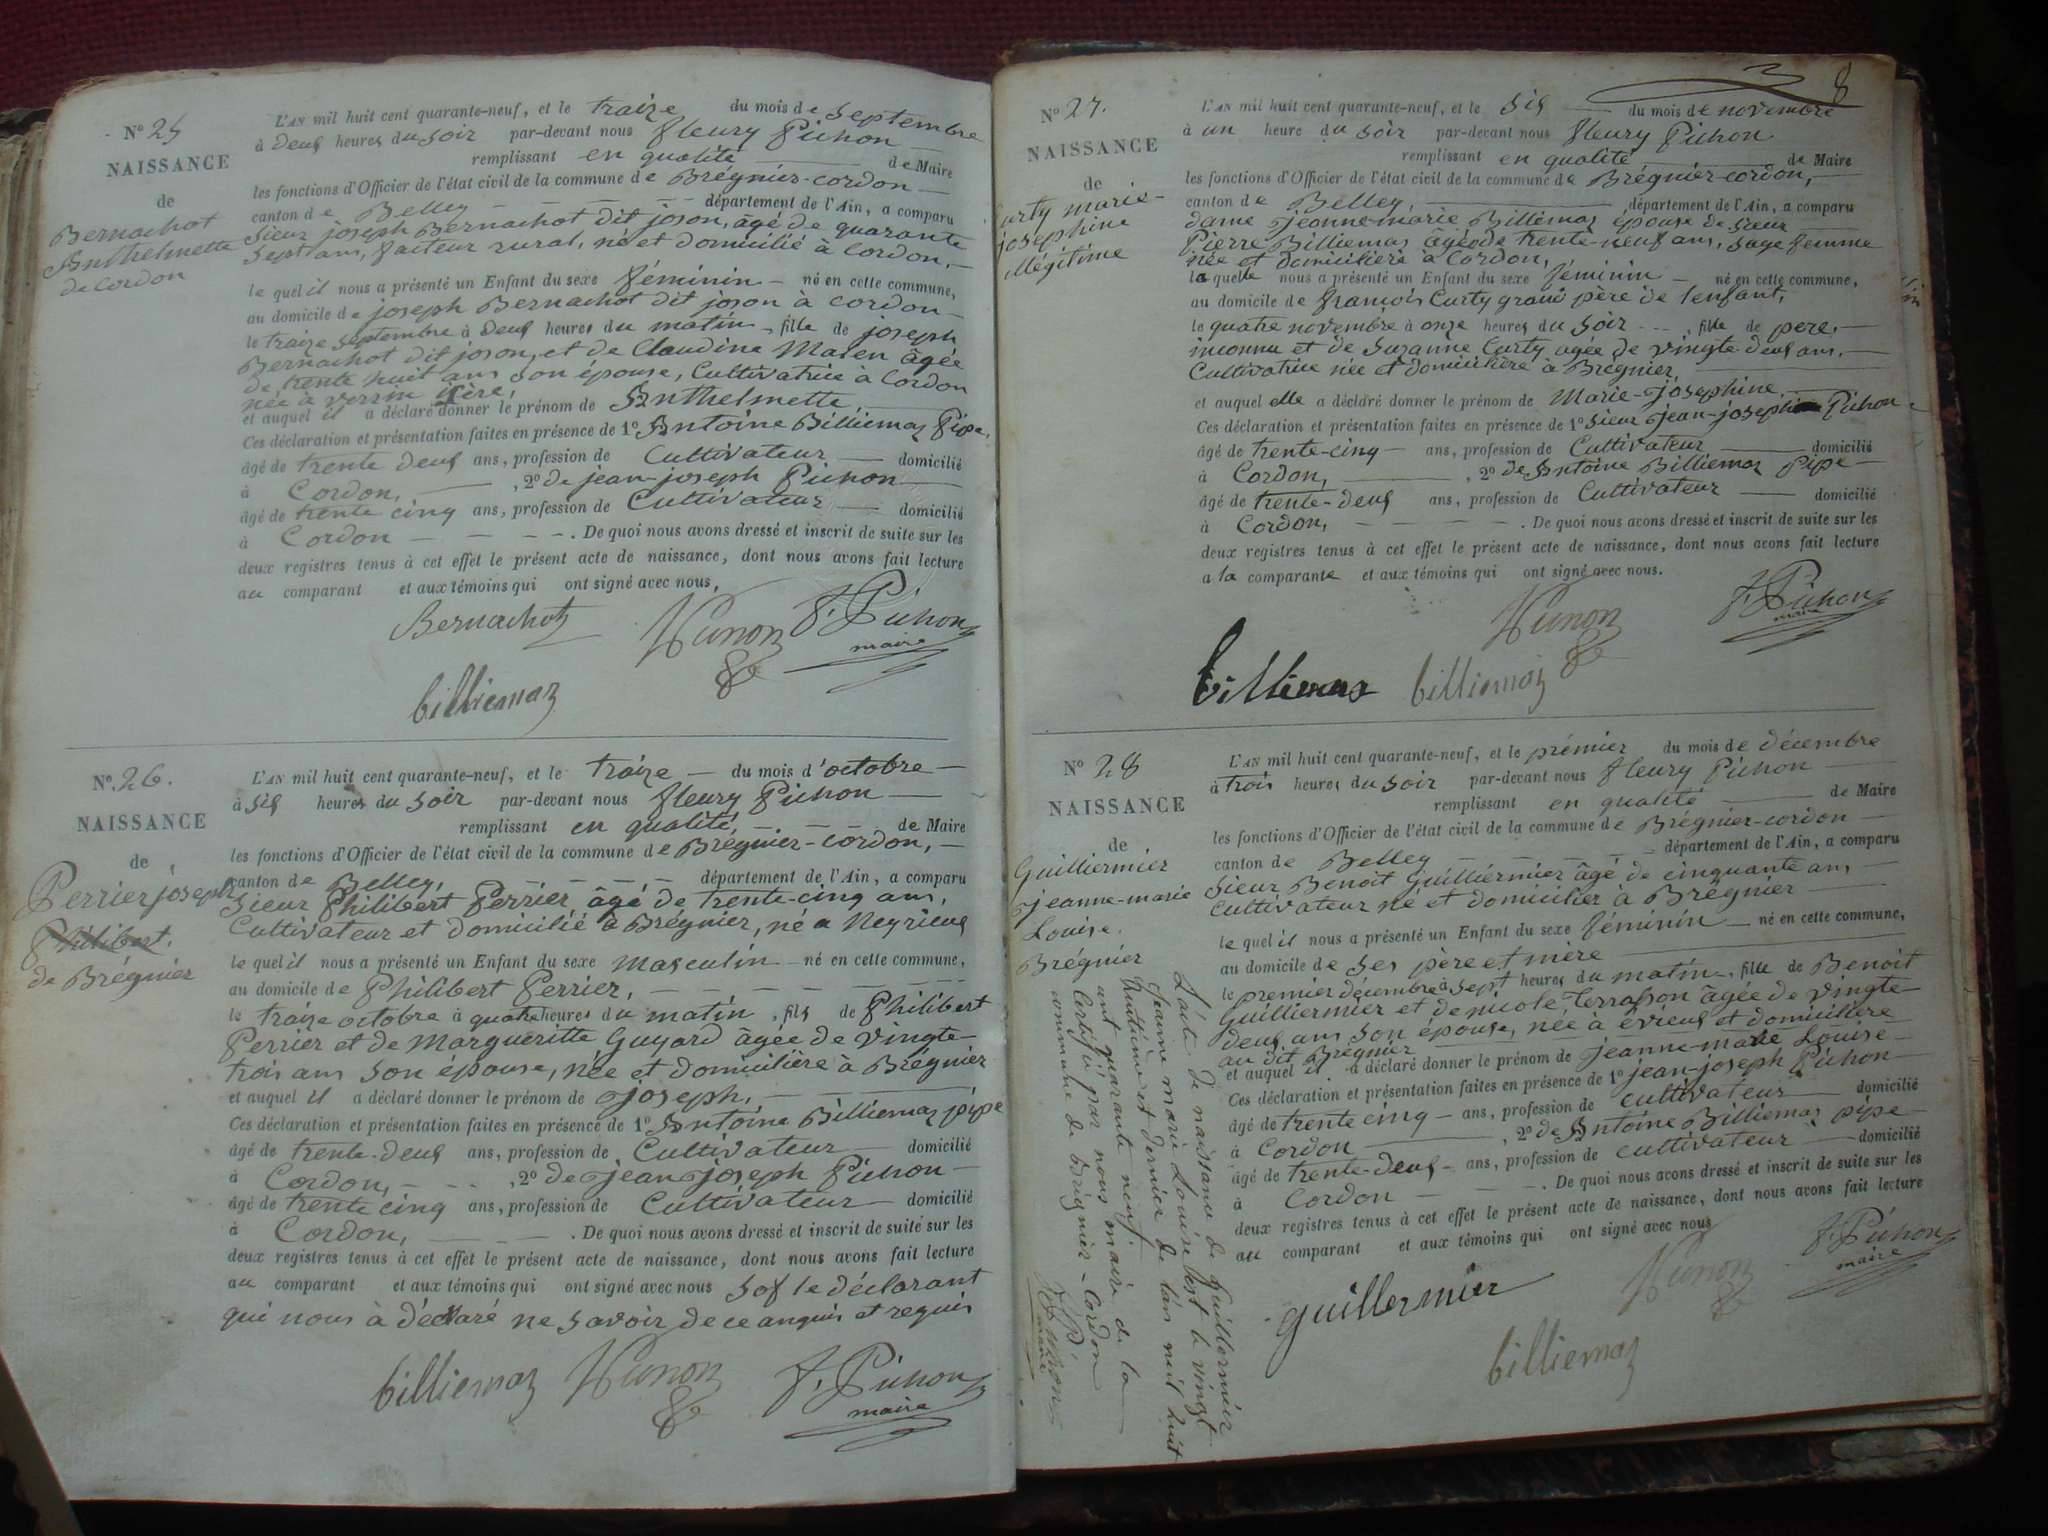 N° 25
NAISSANCE
de
Bernachot
Anthelmette
de Cordon
L'AN mil huit cent quarante-neuf, et le traize du mois de septembre
à deux heures du soir par-devant nous fleury Pichon
remplissant en qualité de Maire
les fonctions d'Officier de l'état civil de la commune de Brégnier-cordon
canton de Belley département de l'Ain, a comparu
sieur joseph Bernachot dit joson, âgé de quarante
sept ans, facteur rural, né et domicilié à Cordon,
le quel il nous a présenté un Enfant du sexe féminin né en cette commune,
au domicile de joseph Bernachot dit joson à cordon
le traize septembre à deux heures du matin, fille de joseph
Bernachot dit joson, et de Claudine Maren âgée
de trente huit ans son épouse, Cultivatrice à Cordon
née à
et auquel il a déclaré donner le prénom de Anthelmette
Ces déclaration et présentation faites en présence de 1° Antoine Billiemaz Pipe,
âgé de trente deux ans, profession de Cultivateur domicilié
à Cordon, , 2° de jean-joseph Pichon
âgé de trente cinq ans, profession de Cultivateur domicilié
à Cordon . De quoi nous avons dressé et inscrit de suite sur les
deux registres tenus à cet effet le présent acte de naissance, dont nous avons fait lecture
au comparant et aux témoins qui ont signé avec nous,
Bernachot F. Pichon
maire
billiemaz
N° 26.
NAISSANCE
de
Perrier joseph
Philibert.
de Brégnier
L'AN mil huit cent quarante-neuf, et le traize du mois d'octobre
à six heures du soir par-devant nous fleury Pichon
remplissant en qualité de Maire
les fonctions d'Officier de l'état civil de la commune de Brégnier-cordon,
canton de Belley, département de l'Ain, a comparu
sieur Philibert Perrier âgé de trente-cinq ans,
Cultivateur et domicilié à Brégnier, né a Neyrieux
le quel il nous a présenté un Enfant du sexe masculin né en cette commune,
au domicile de Philibert Perrier,
le traize octobre à quatre heures du matin, fils de Philibert
Perrier et de Margueritte Guyard âgée de vingte-
trois ans son épouse, née et domicilière à Brégnier
et auquel il a déclaré donner le prénom de joseph,
Ces déclaration et présentation faites en présence de 1° Antoine Billiemaz pipe
âgé de trente-deux ans, profession de Cultivateur domicilié
à Cordon, , 2° de jean-joseph Pichon
âgé de trente cinq ans, profession de Cultivateur domicilié
à Cordon, . De quoi nous avons dressé et inscrit de suite sur les
deux registres tenus à cet effet le présent acte de naissance, dont nous avons fait lecture
au comparant et aux témoins qui ont signé avec nous sof le déclarant
qui nous à déclaré ne savoir de ce anquis et requis
billiemaz F. Pichon
maire
8
N° 27.
NAISSANCE
de
Curty marie-
josephine
illégitime
L'AN mil huit cent quarante-neuf, et le six du mois de novembre
à un heure du soir par-devant nous fleury Pichon
remplissant en qualité de Maire
les fonctions d'Officier de l'état civil de la commune de Brégnier-cordon,
canton de Belley, département de l'Ain, a comparu
dame jeanne-marie Billiemaz épouse de sieur
Pierre Billiemaz âgée de trente-neuf ans, sage femme
née et domicilière à Cordon,
la quelle nous a présenté un Enfant du sexe féminin né en cette commune,
au domicile de françois Curty grand père de l'enfant,
le quatre novembre à onze heures du soir, fille de père,
inconnu et de Suzanne Curty agée de vingte-deux ans,
Cultivatrice née et domicilière à Brégnier,
et auquel elle a déclaré donner le prénom de Marie-josephine
Ces déclaration et présentation faites en présence de 1° sieur jean-joseph Pichon
âgé de trente-cinq ans, profession de Cultivateur domicilié
à Cordon, , 2° de Antoine Billiemaz Pipe
âgé de trente-deux ans, profession de Cultivateur domicilié
à Cordon, . De quoi nous avons dressé et inscrit de suite sur les
deux registres tenus à cet effet le présent acte de naissance, dont nous avons fait lecture
a la comparante et aux témoins qui ont signé avec nous.
F. Pichon
maire
billiemaz billiemaz
N° 28
NAISSANCE
de
Guilliermier
jeanne-marie
Louise.
Brégnier
L'AN mil huit cent quarante-neuf, et le prémier du mois de décembre
à trois heures du soir par-devant nous fleury Pichon
remplissant en qualité de Maire
les fonctions d'Officier de l'état civil de la commune de Brégnier-cordon
canton de Belley département de l'Ain, a comparu
sieur Benoit Guilliermier âgé de cinquante ans
cultivateur né et domicilier à Brégnier
le quel il nous a présenté un Enfant du sexe féminin né en cette commune,
au domicile de ses père et mère
le premier décembre à sept heures du matin, fille de Benoit
Guilliermier et de nicole Terrasson âgée de vingte-
deux ans son épouse, née à évieux et domicilière
au dit Brégnier
et auquel il a déclaré donner le prénom de jeanne-marie Louise
Ces déclaration et présentation faites en présence de 1° jean-joseph Pichon
âgé de trente cinq ans, profession de cultivateur domicilié
à Cordon , 2° de Antoine Billiemaz pipe
âgé de trente-deux ans, profession de cultivateur domicilié
à Cordon . De quoi nous avons dressé et inscrit de suite sur les
deux registres tenus à cet effet le présent acte de naissance, dont nous avons fait lecture
au comparant et aux témoins qui ont signé avec nous
F. Pichon
maire
guillermier
billiemaz
L'acte de naissance de Guillermier
Jeanne marie Louise est le vingt
huitième et dernier de l'an mil huit
cent quarante neuf
Certifié par nous maire de la
commune de Brégnier-Cordon